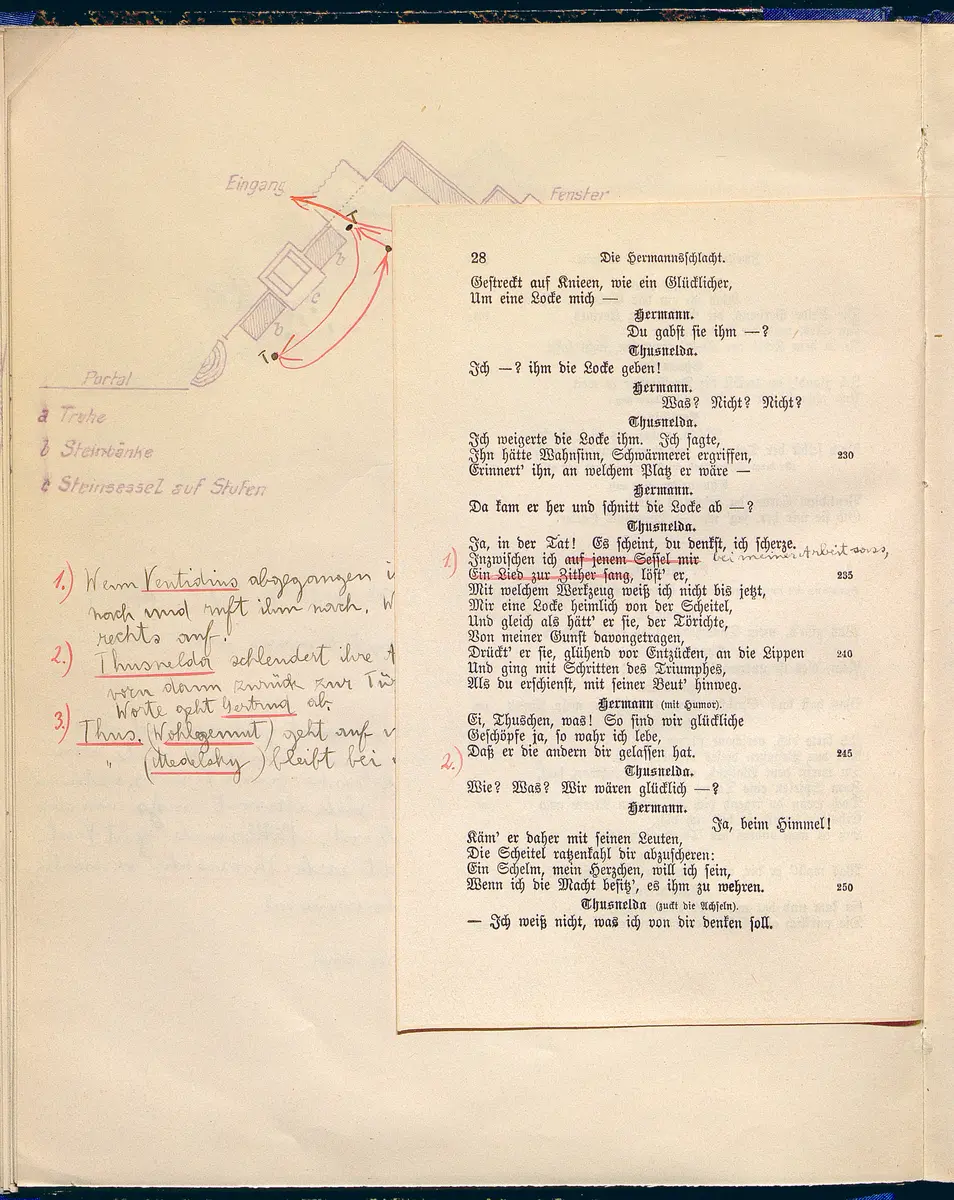 Eingang
Fenster
T
b
c
b
T
Portal
a Truhe
b Steinbänke
c Steinsessel auf Stufen
1.) Wenn Ventidius abgegangen i
nach und ruft ihm nach. W
rechts auf.
2.) Thusnelda schlendert ihre A
vorn dann zurück zur Tür
Worte geht Gertrud ab
3.) Thus. (Wohlgemut) geht auf
" (Medelsky) bleibt bei
28 Die Hermannsschlacht.
Gestreckt auf Knieen, wie ein Glücklicher,
Um eine Locke mich —
Hermann.
Du gabst sie ihm —?
Thusnelda.
Ich —? ihm die Locke geben!
Hermann.
Was? Nicht? Nicht?
Thusnelda.
Ich weigerte die Locke ihm. Ich sagte,
Ihn hätte Wahnsinn, Schwärmerei ergriffen, 230
Erinnert' ihn, an welchem Platz er wäre —
Hermann.
Da kam er her und schnitt die Locke ab —?
Thusnelda.
Ja, in der Tat! Es scheint, du denkst, ich scherze.
1.) Inzwischen ich auf jenem Sessel mir bei meiner Arbeit sass,
Ein Lied zur Zither sang, löst' er, 235
Mit welchem Werkzeug weiß ich nicht bis jetzt,
Mir eine Locke heimlich von der Scheitel,
Und gleich als hätt' er sie, der Törichte,
Von meiner Gunst davongetragen,
Drückt' er sie, glühend vor Entzücken, an die Lippen 240
Und ging mit Schritten des Triumphes,
Als du erschienst, mit seiner Beut' hinweg.
Hermann (mit Humor).
Ei, Thuschen, was! So sind wir glückliche
Geschöpfe ja, so wahr ich lebe,
2.) Daß er die andern dir gelassen hat. 245
Thusnelda.
Wie? Was? Wir wären glücklich —?
Hermann.
Ja, beim Himmel!
Käm' er daher mit seinen Leuten,
Die Scheitel ratzenkahl dir abzuscheren:
Ein Schelm, mein Herzchen, will ich sein,
Wenn ich die Macht besitz', es ihm zu wehren. 250
Thusnelda (zuckt die Achseln).
— Ich weiß nicht, was ich von dir denken soll.